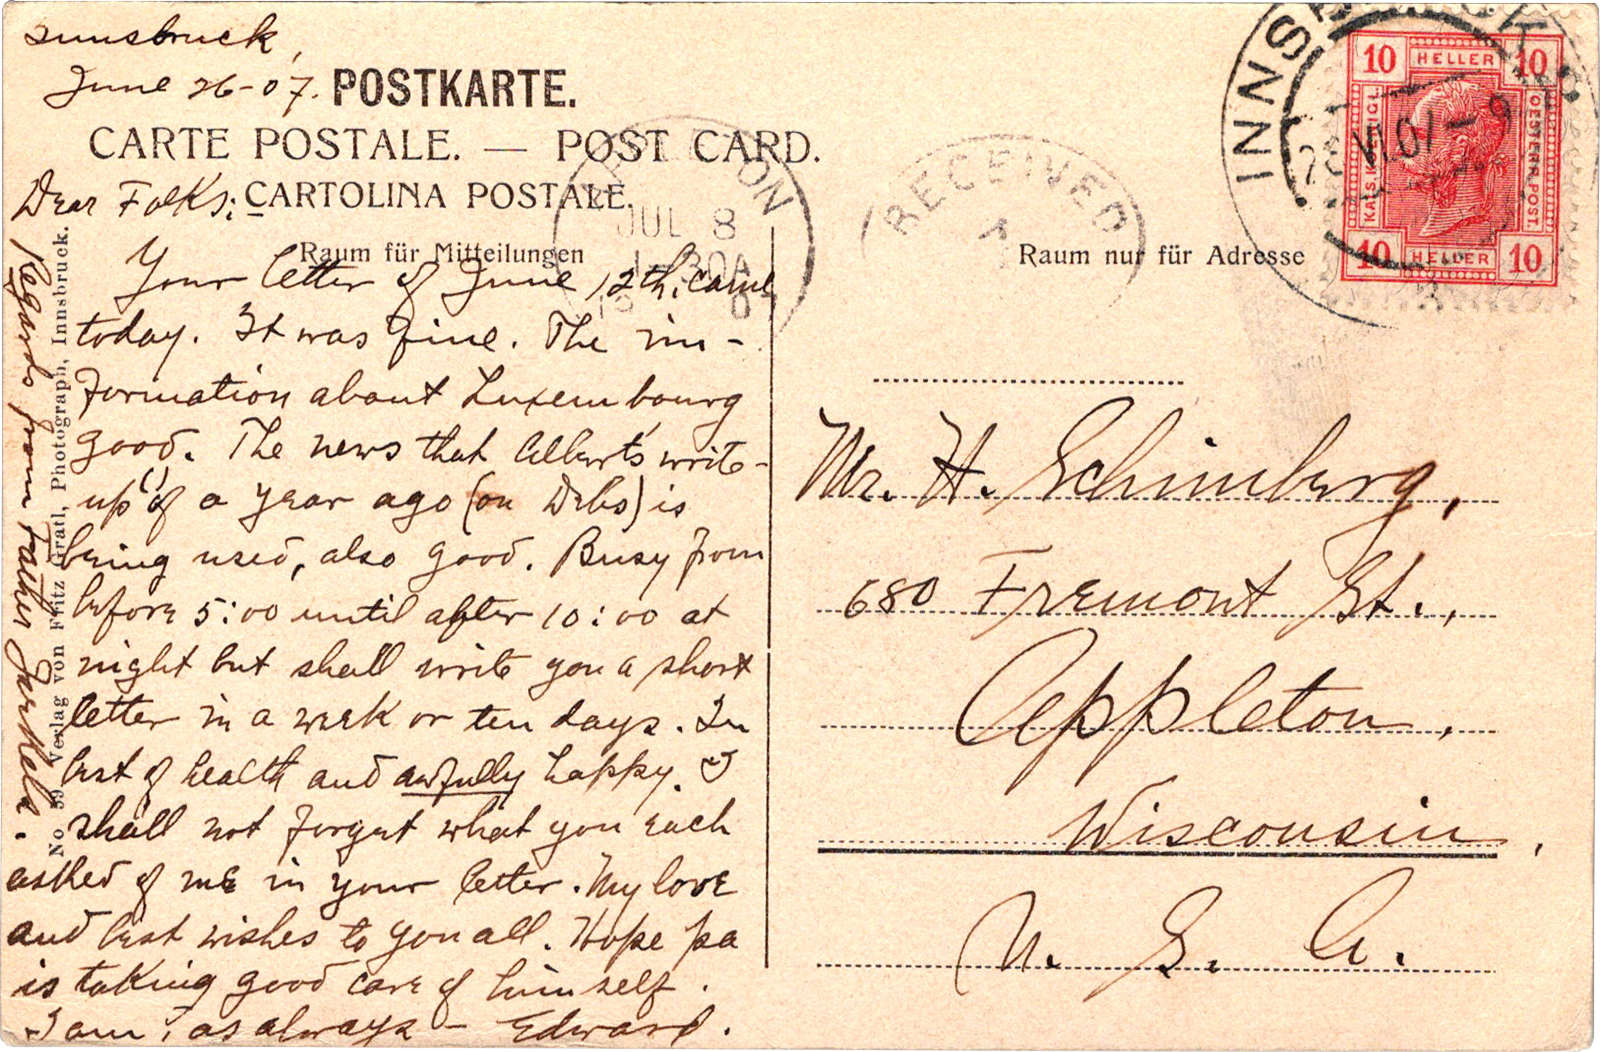 Innsbruck,
June 26-07.
POSTKARTE.
CARTE POSTALE. — POST CARD.
CARTOLINA POSTALE.
Raum für Mitteilungen
Raum nur für Adresse
Dear Folks:
Your letter of June 12th, came
today. It was fine. The in-
formation about Luxembourg
good. The news that Albert's write-
up" of a year ago (on Debs) is
being used, also good. Busy from
before 5:00 until after 10:00 at
night but shall write you a short
letter in a week or ten days. In
best of health and awfully happy. I
shall not forget what you each
asked of me in your letter. My love
and best wishes to you all. Hope pa
is taking good care of himself.
I am, as always – Edward.
Regards from Father
No 59 Verlag von Fritz Gratl, Photograph, Innsbruck.
Mr. H. Schimberg,
680 Fremont St.,
Appleton,
Wisconsin,
U. S. A.
APPLETON
JUL 8
RECEIVED
INNSBRUCK
26 VI 07-9
10 HELLER 10
KAIS. KÖNIGL.
OESTERR. POST.
10 HELLER 10